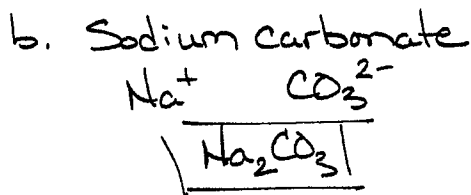 b. Sodium carbonate
Na⁺ CO₃²⁻
Na₂CO₃